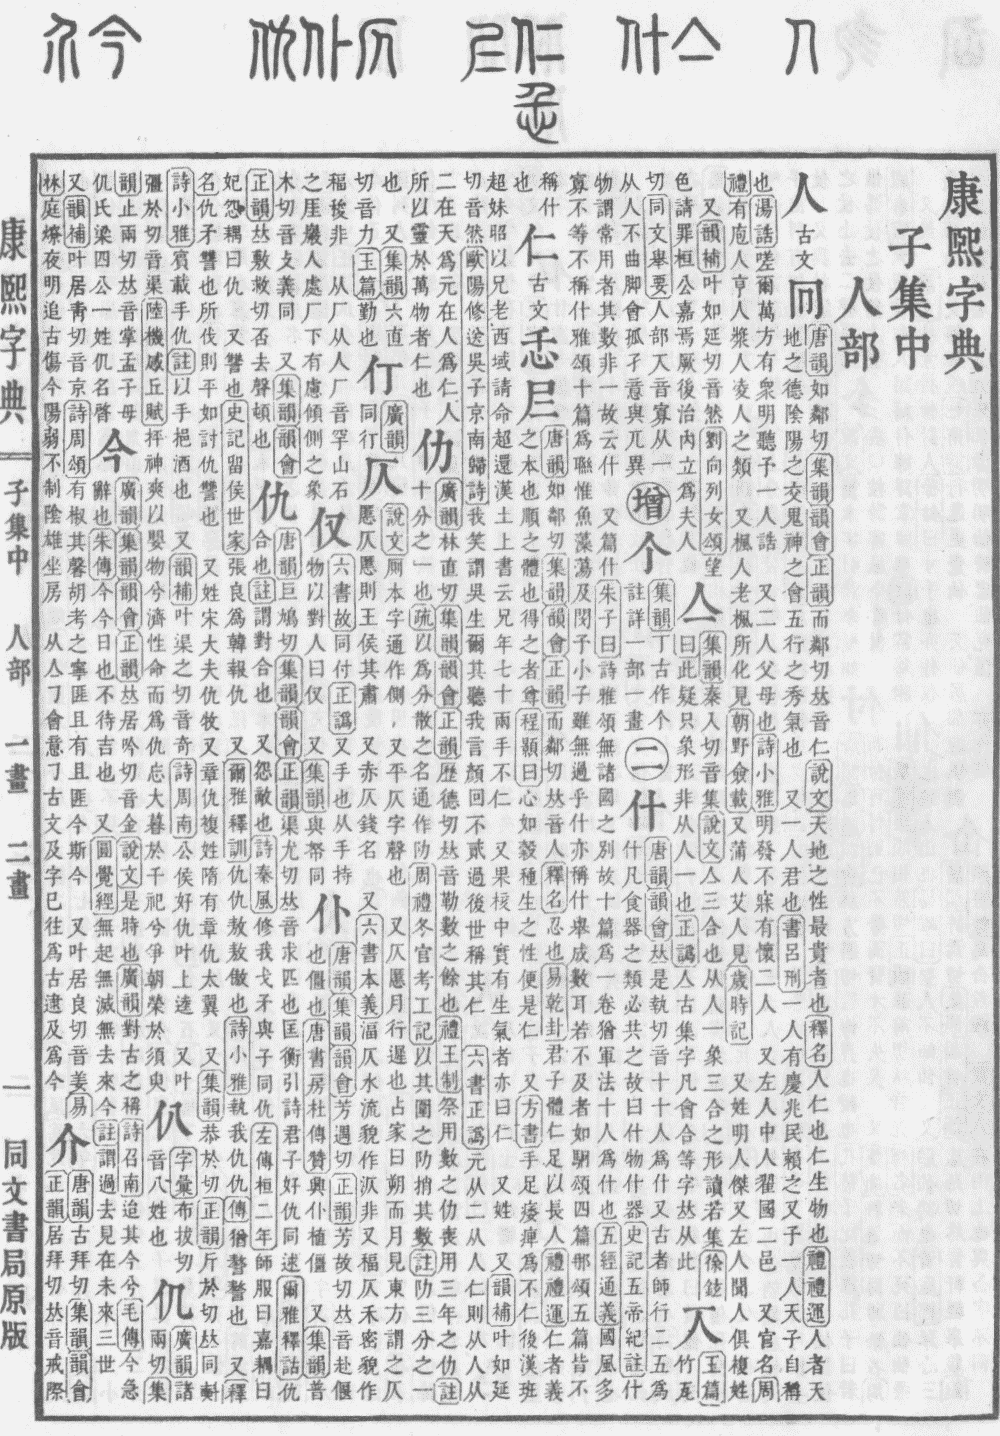 康熙字典
子集中
人部
人 古文 𠔽 唐韻如鄰切集韻韻會正韻而鄰切𠀤音仁說文天地之性最貴者也釋名人仁也仁生物也禮禮運人者天
地之德陰陽之交鬼神之會五行之秀氣也 又一人君也書呂刑一人有慶兆民賴之又予一人天子自稱
也湯誥嗟爾萬方有衆明聽予一人誥 又二人父母也詩小雅明發不寐有懷二人 又左人中人翟國二邑 又官名周
禮有庖人亨人漿人凌人之類 又楓人老楓所化見朝野僉載又蒲人艾人見歲時記 又姓明人傑又左人聞人俱複姓
又韻補叶如延切音然劉向列女頌望
色請罪桓公嘉焉厥後治內立爲夫人
亼 集韻秦入切音集說文亼三合也从人一象三合之形讀若集徐鉉
曰此疑只象形非从人一也正譌亼古集字凡會合等字𠀤从此
𠆣 玉篇竹瓦
切同文舉要人部𠆣音寡从一
从人不曲脚會孤孑意與兀異
增 个 集韻丁古作个
註詳一部一畫
二 什 唐韻韻會𠀤是執切音十十人爲什又古者師行二五爲
什凡食器之類必共之故曰什物什器史記五帝紀註什
物謂常用者其數非一故云什 又篇什朱子曰詩雅頌無諸國之別故十篇爲一卷猶軍法十人爲什也五經通義國風多
寡不等不稱什雅頌十篇爲聯惟魚藻蕩及閔予小子雖無過乎什亦稱什舉成數耳若不及者如駉頌四篇那頌五篇皆不
稱什
也
仁 古文 忎𡰥 唐韻如鄰切集韻韻會正韻而鄰切𠀤音人釋名忍也易乾卦君子體仁足以長人禮禮運仁者義
之本也順之體也得之者尊程顥曰心如穀種生之性便是仁 又方書手足痿痺爲不仁後漢班
超妹昭以兄老西域請命超還漢土上書云兄年七十兩手不仁 又果核中實有生氣者亦曰仁 又姓 又韻補叶如延
切音然歐陽修送吳子京南歸詩我笑謂吳生爾其聽我言顏回不貳過後世稱其仁 六書正譌元从二从人仁則从人从
二在天爲元在人爲仁人
所以靈於萬物者仁也
仂 廣韻林直切集韻韻會正韻歷德切𠀤音勒數之餘也禮王制祭用數之仂喪用三年之仂註
十分之一也疏以爲分散之名通作阞周禮冬官考工記以其圍之阞捎其數註阞三分之一
也 又集韻六直
切音力玉篇勤也
仃 廣韻
同行
仄 說文厠本字通作側 又平仄字聲也 又仄慝月行遲也占家曰朔而月見東方謂之仄
慝仄慝則王侯其肅 又赤仄錢名 又六書本義湢仄水流貌作汳非又楅仄禾密貌作
福稄非 从厂从人厂音罕山石
之厓巖人處厂下有慮傾側之象
仅 六書故同付正譌又手也从手持
物以對人曰仅 又集韻與帑同
仆 唐韻集韻韻會芳遇切正韻芳故切𠀤音赴偃
也僵也唐書房杜傳贊興仆植僵 又集韻普
木切音攴義同 又集韻韻會
正韻𠀤敷救切否去聲頓也
仇 唐韻巨鳩切集韻韻會正韻渠尤切𠀤音求匹也匡衡引詩君子好仇同逑爾雅釋詁仇
合也註謂對合也 又怨敵也詩秦風修我戈矛與子同仇左傳桓二年師服曰嘉耦曰
妃怨耦曰仇 又讐也史記留侯世家張良爲韓報仇 又爾雅釋訓仇仇敖敖傲也詩小雅執我仇仇傳猶謷謷也 又釋
名仇矛讐也所伐則平如討仇讐也 又姓宋大夫仇牧又章仇複姓隋有章仇太翼 又集韻恭於切正韻斤於切𠀤同㪺
詩小雅賓載手仇註以手挹酒也 又韻補叶渠之切音奇詩周南公侯好仇叶上逵 又叶
彊於切音渠陸機感丘賦抨神爽以嬰物兮濟性命而爲仇忘大暮於千祀兮爭朝榮於須臾
仈 字彙布拔切
音八姓也
仉 廣韻諸
兩切集
韻止兩切𠀤音掌孟子母
仉氏梁四公一姓仉名䏿
今 廣韻集韻韻會正韻𠀤居吟切音金說文是時也廣韻對古之稱詩召南迨其今兮毛傳今急
辭也朱傳今今日也不待吉也 又圓覺經無起無滅無去來今註謂過去見在未來三世
又韻補叶居靑切音京詩周頌有椒其馨胡考之寧匪且有且匪今斯今 又叶居良切音姜易
林庭燎夜明追古傷今陽弱不制陰雄坐房 从亼㇆會意㇆古文及字已往爲古逮及爲今
介 唐韻古拜切集韻韻會
正韻居拜切𠀤音戒際
康熙字典 子集中 人部 一畫 二畫 一 同文書局原版